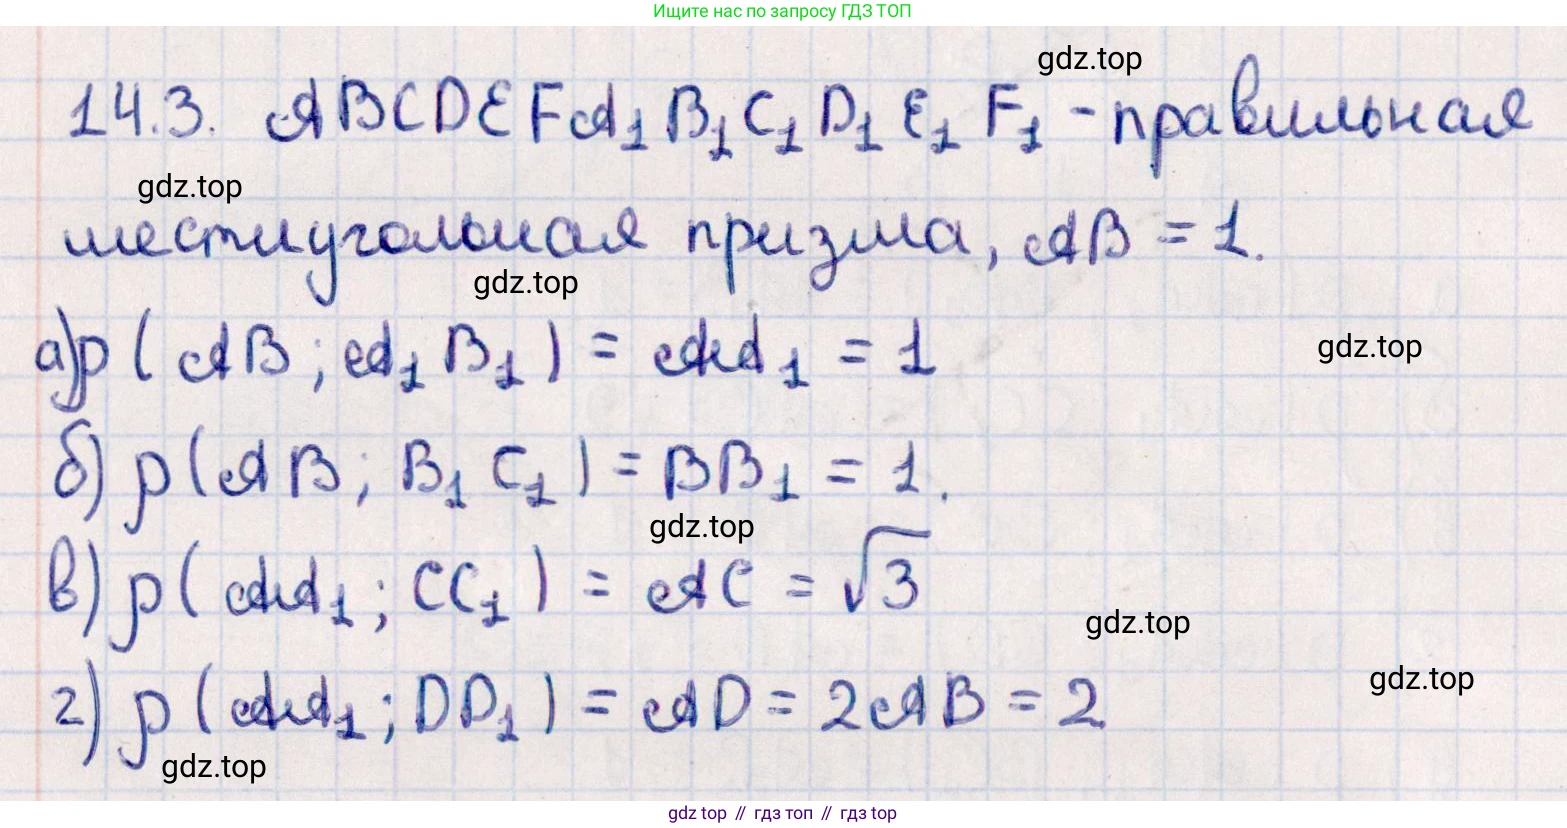 Ищите нас по запросу ГДЗ ТОП
gdz.top
14.3. ABCDEFA₁B₁C₁D₁E₁F₁ - правильная
gdz.top
шестиугольная призма, AB = 1.
gdz.top
а) ρ(AB; A₁B₁) = AA₁ = 1
gdz.top
б) ρ(AB; B₁C₁) = BB₁ = 1.
gdz.top
в) ρ(AA₁; CC₁) = AC = √3
gdz.top
gdz.top
г) ρ(AA₁; DD₁) = AD = 2AB = 2
gdz.top
gdz top // гдз топ // гдз top